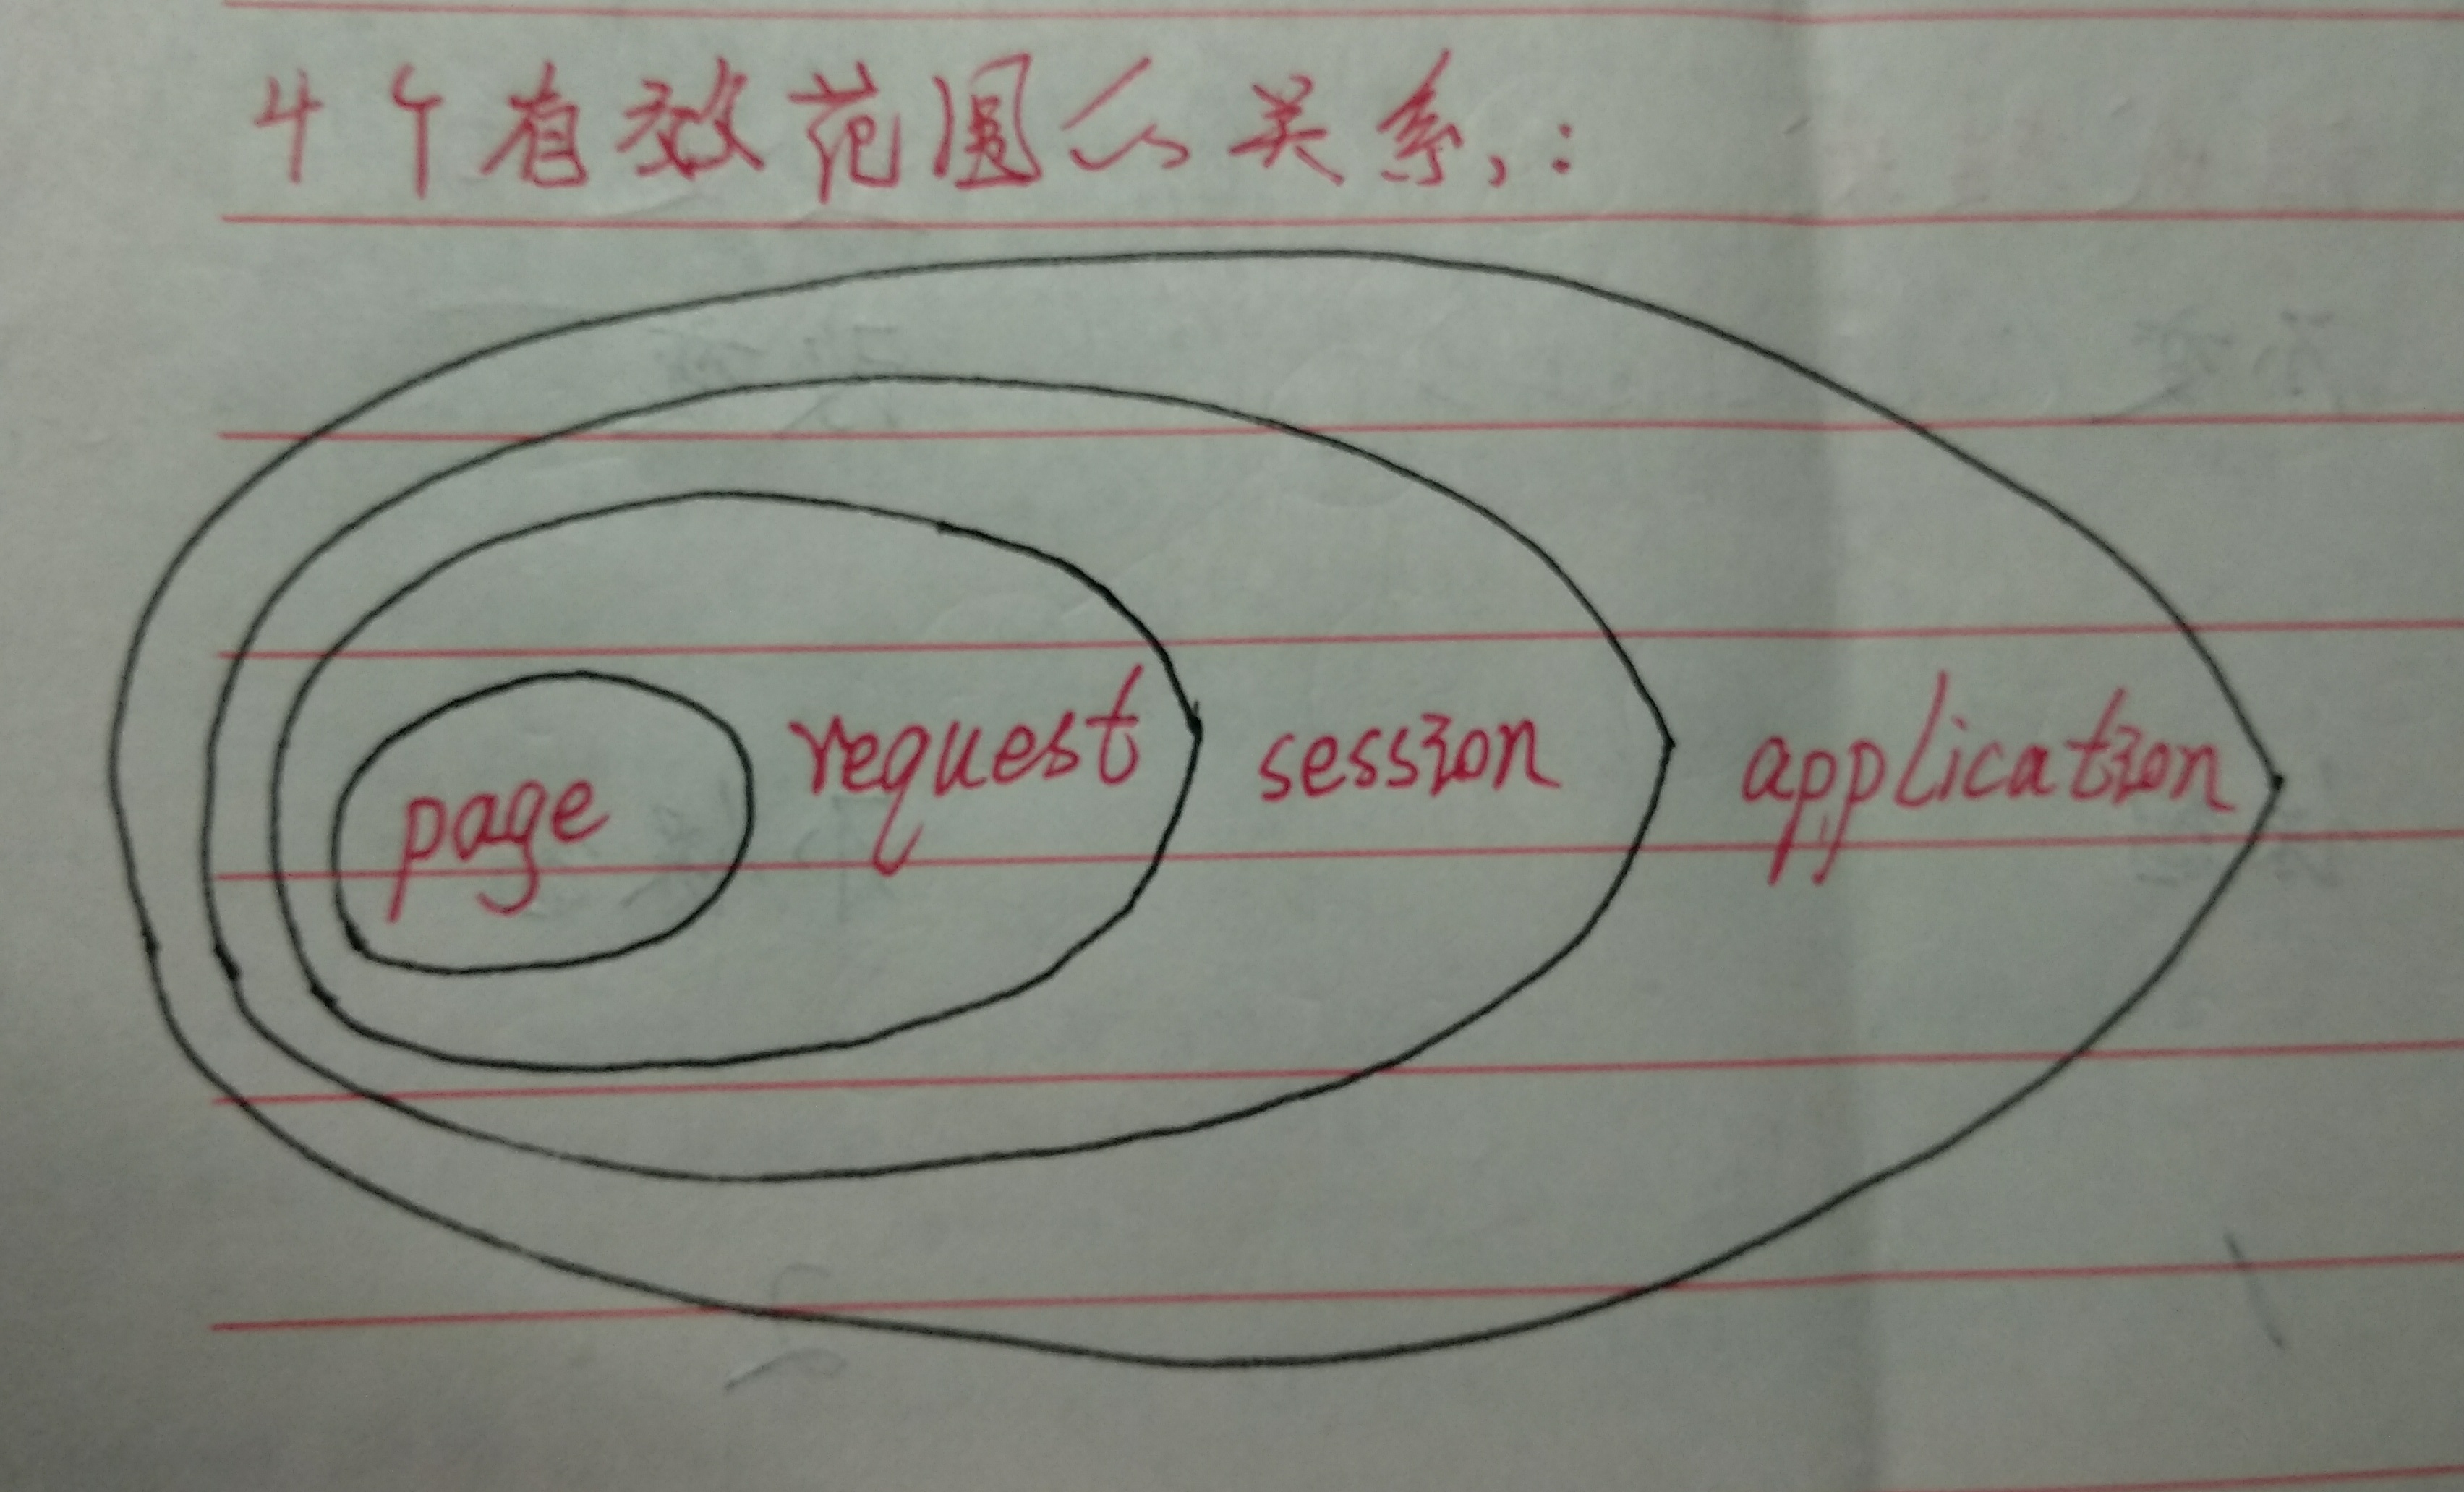 4个有效范围的关系,:
page request session application